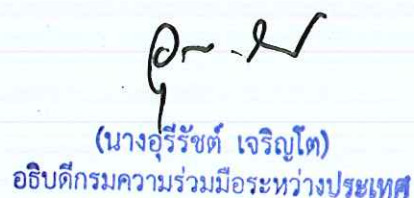 (นางอุรีรัชต์ เจริญโต)
อธิบดีกรมความร่วมมือระหว่างประเทศ